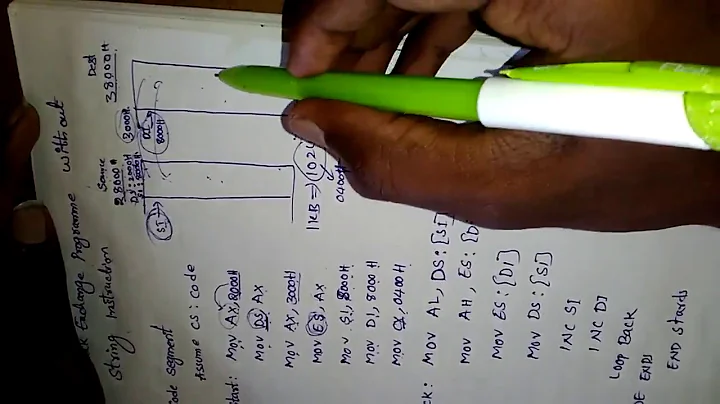 ck Exchange Programme without
string Instruction
Source
28000H
DS: 2000H
SI
Dest
38000H
3000H
DI
8000H
1KB => 1024
0400H
ode segment
Assume CS: code
start: MOV AX, 2000H
MOV DS, AX
MOV AX, 3000H
MOV ES, AX
MOV SI, 8000H
MOV DI, 8000H
MOV CX, 0400H
ck: MOV AL, DS:[SI]
MOV AH, ES:[D
MOV ES:[DI]
MOV DS:[SI]
INC SI
INC DI
Loop Back
DE ENDS
END start